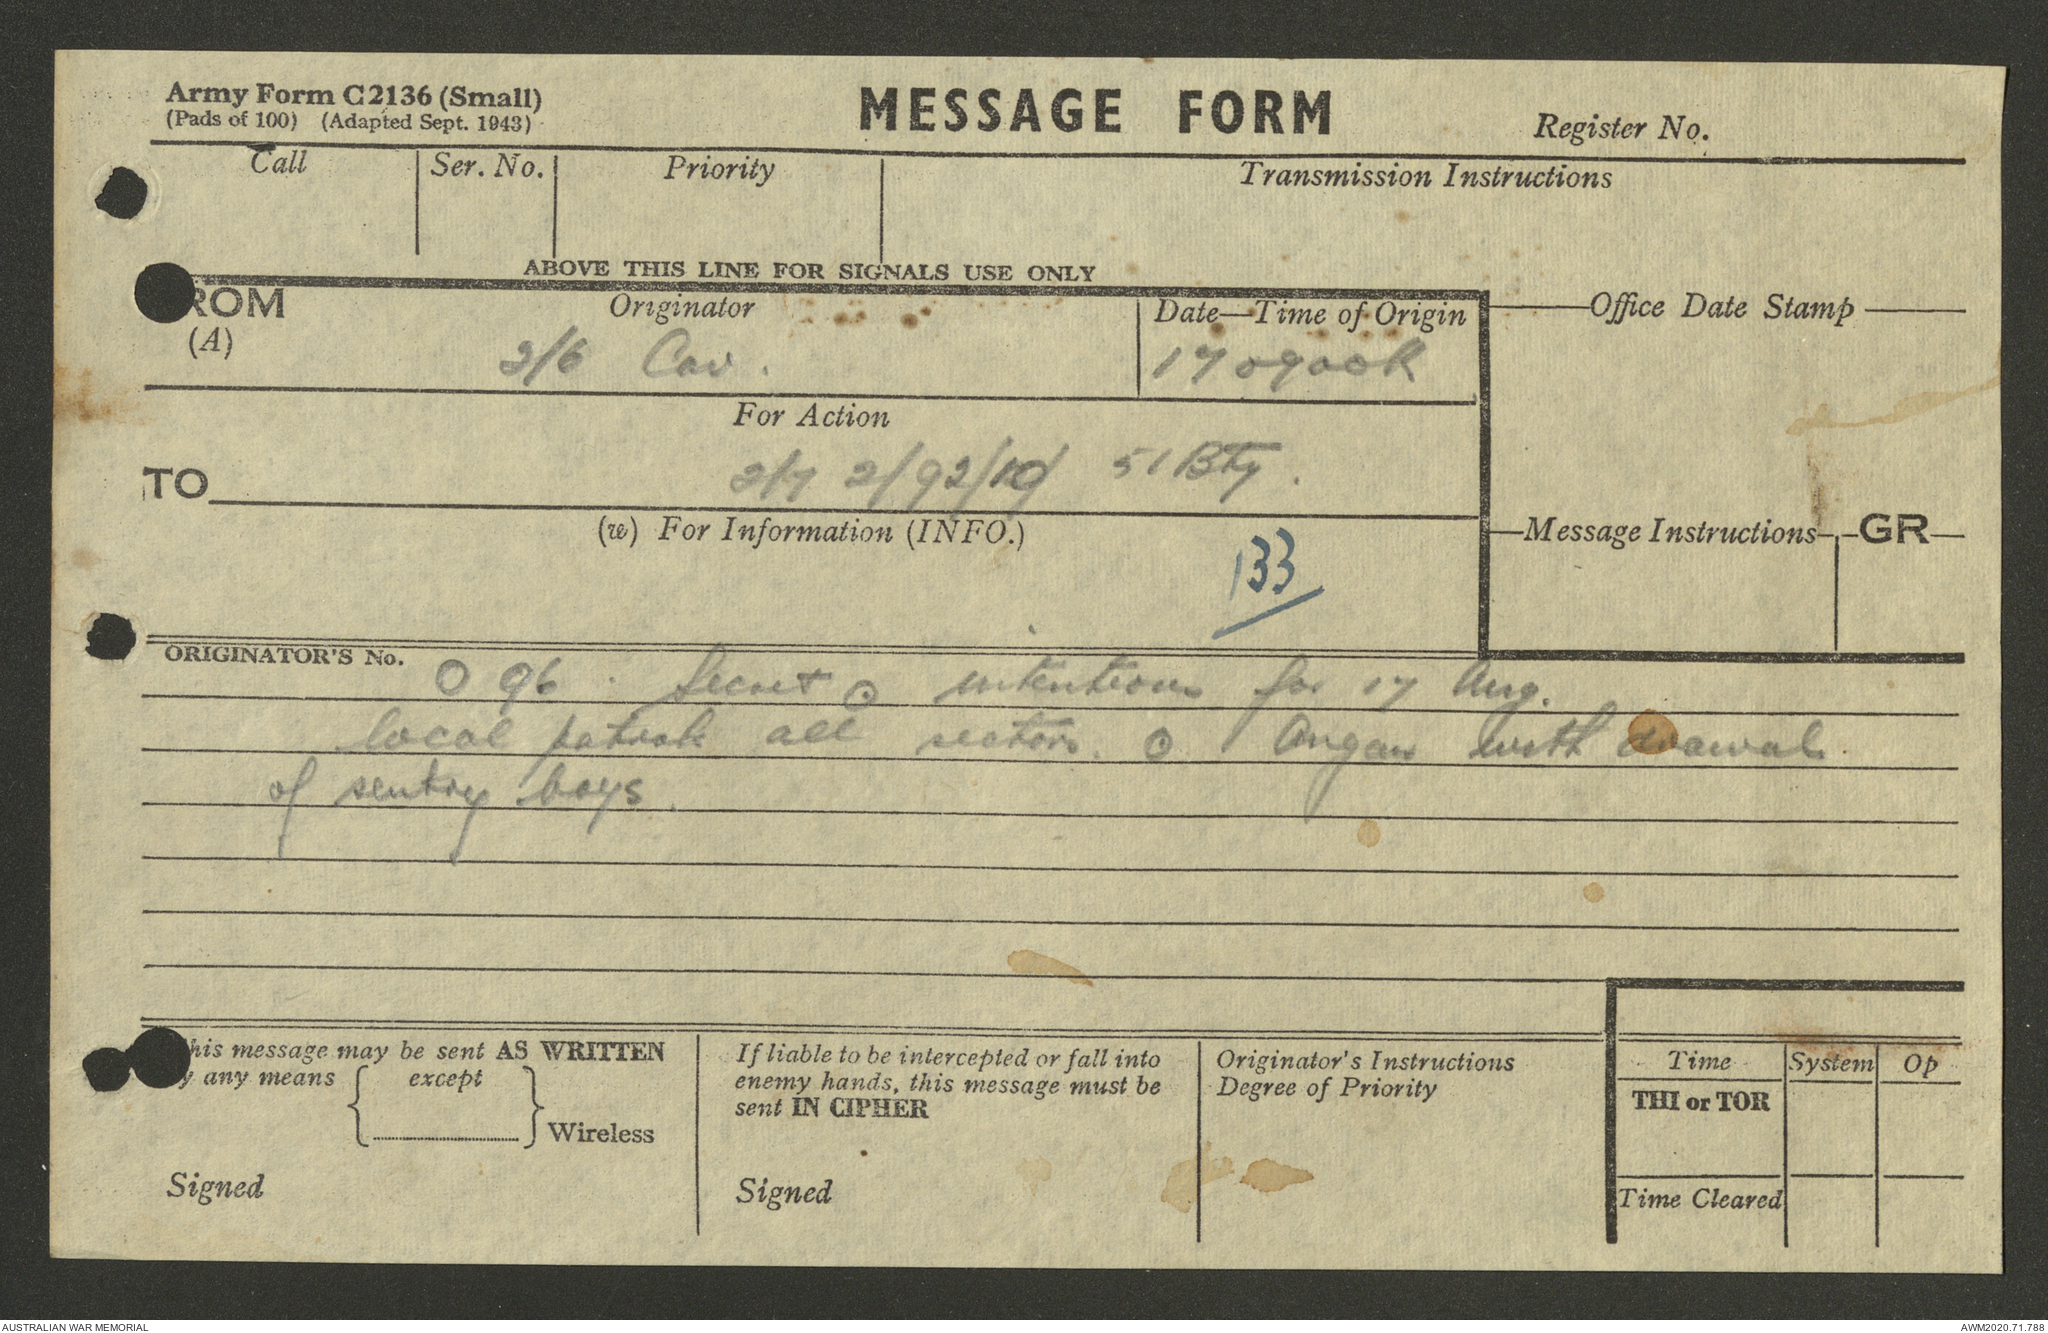 Army Form C2136 (Small)
(Pads of 100) (Adapted Sept. 1943)
MESSAGE FORM
Register No.
Call Ser. No. Priority Transmission Instructions
ABOVE THIS LINE FOR SIGNALS USE ONLY
ROM
(A)
Originator
2/6 Cav.
Date—Time of Origin
170900K
Office Date Stamp
For Action
TO
2/7 2/9 2/10 51 Bty.
(w) For Information (INFO.)
133
Message Instructions GR
ORIGINATOR'S No.
O 96 . Secret ⊙ intentions for 17 Aug.
local patrols all sectors. ⊙ Angau with drawals.
of sentry boys.
his message may be sent AS WRITTEN
y any means except
Wireless
Signed
If liable to be intercepted or fall into
enemy hands, this message must be
sent IN CIPHER
Signed
Originator's Instructions
Degree of Priority
Time System Op
THI or TOR
Time Cleared
AUSTRALIAN WAR MEMORIAL
AWM2020.71.788